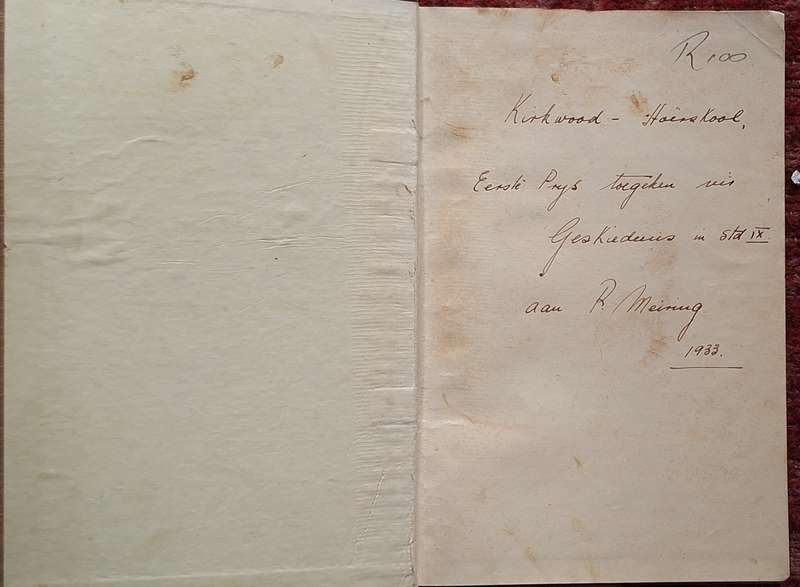 R100
Kirkwood - Hoërskool,
Eerste Prys toegeken vir
Geskiedenis in Std IX
aan R. Meiring
1933.